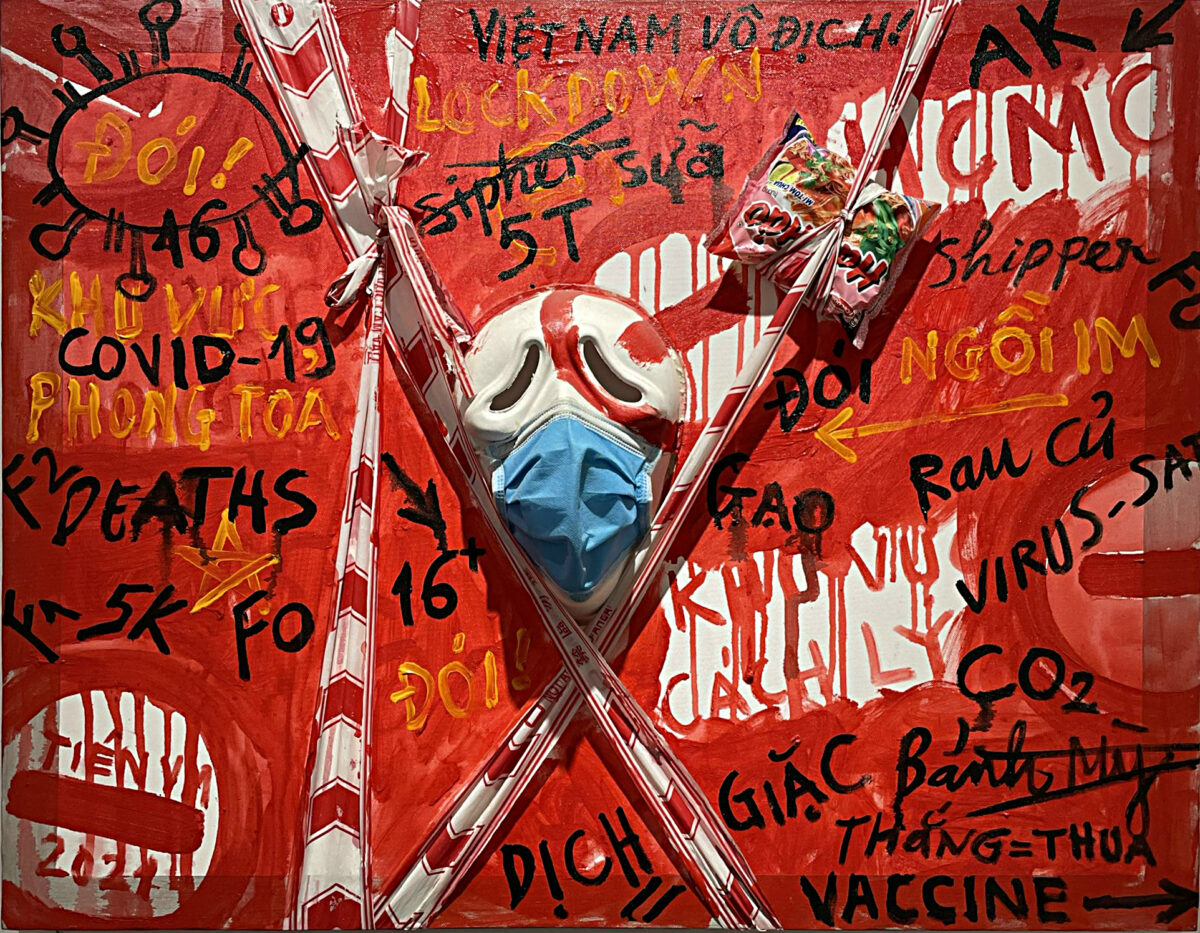 VIỆT NAM VÔ ĐỊCH!
AK
LOCKDOWN
MOMO
ĐÓI!
sipher sữa
5T
16
Hảo
MÌ TÔM CHUA
Hảo
shipper
KHU VỰC
COVID-19
PHONG TOẢ
NGỒI IM
ĐÓI
Rau củ
F2
DEATHS
GẠO
VIRUS-SAT
16+
KHU VỰC
CÁCH LY
F1
5K
F0
ĐÓI!
CO2
TIẾN VN
2021
GIẶC
Bánh Mỳ
THẮNG=THUA
DỊCH!!
VACCINE